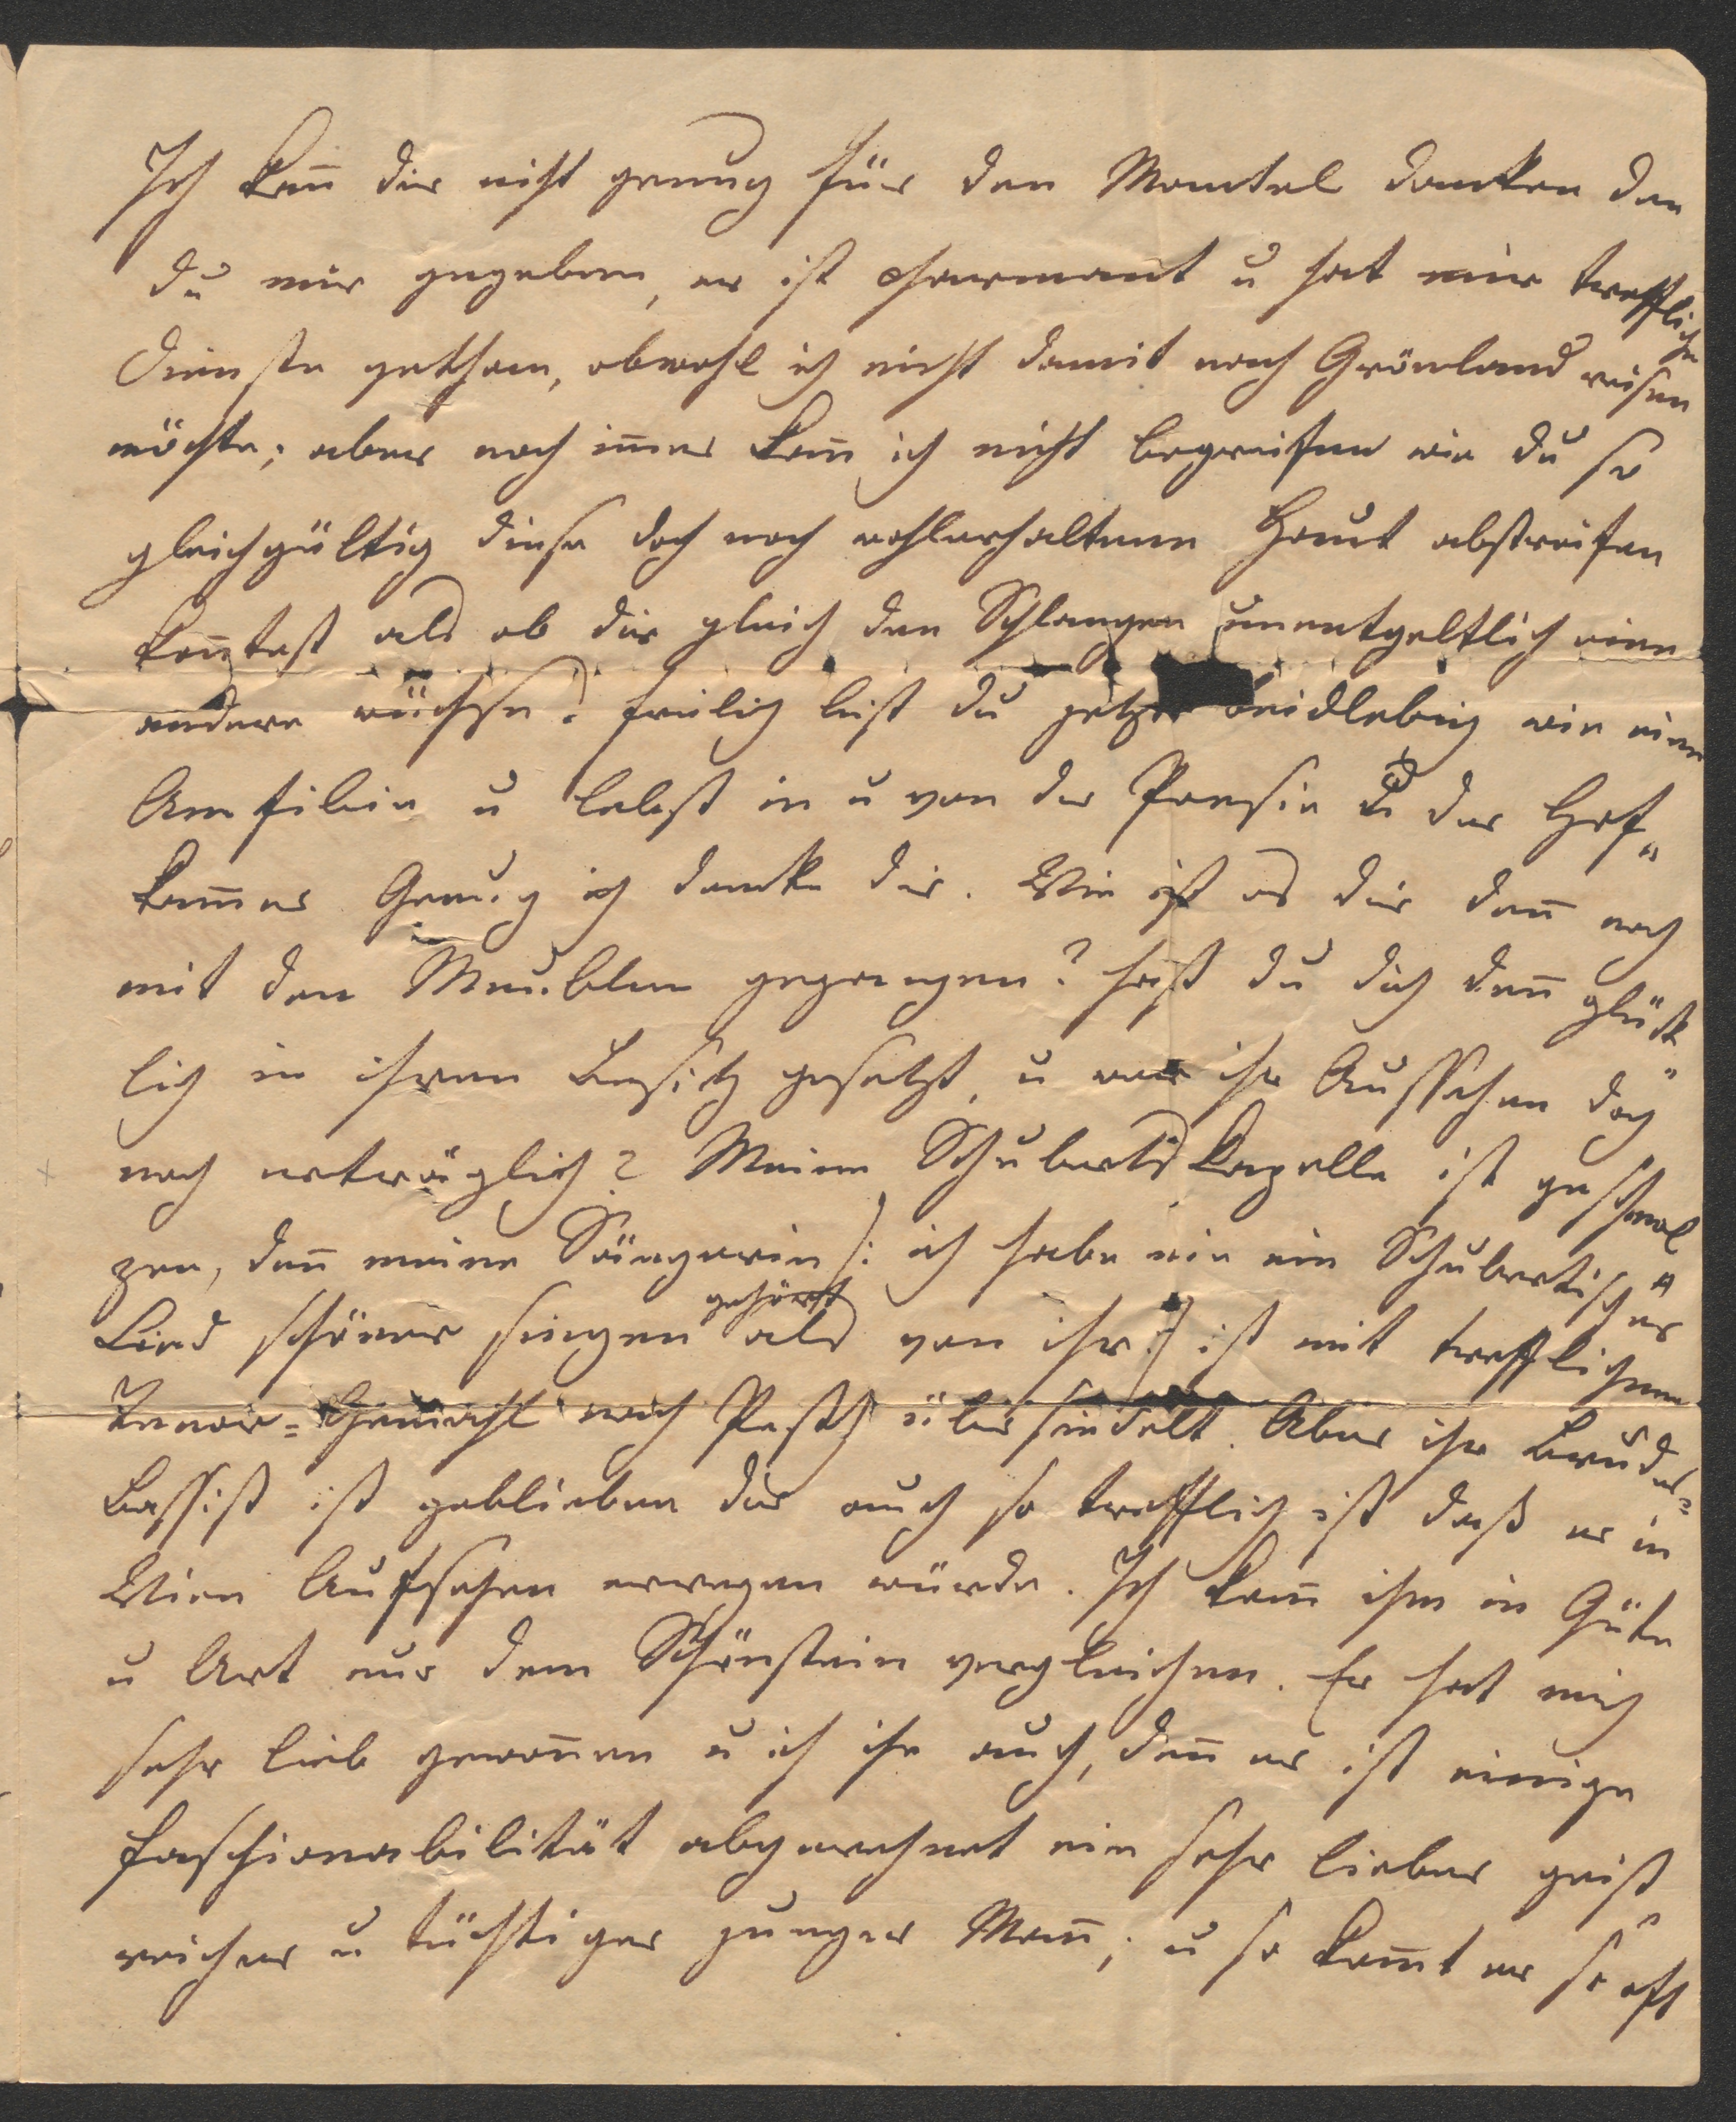 Ich kan̄ dir nicht genug für den Mantel danken den
du mir gegeben, er ist charmant u hat mir treffliche
Dienste gethan, obwohl ich nicht damit nach Grönland reisen
möchte; aber noch im̄er kan̄ ich nicht begreifen wie du so
gleichgültig diese doch noch wohlerhaltene Haut abstreifen
kon̄test als ob dir gleich den Schlangen unentgeltlich eine
andere wüchse? freilich bist du jetzt beidlebig wie eine
Amfibie u lebst in u von der Poesie u der Hof„
kam̄er Genug ich danke dir. Wie ist es dir den̄ noch
mit den Meublen gegangen? hast du dich den̄ glück„
lich in ihren Besitz gesetzt, u war ihr Aussehen doch
noch erträglich? Meine Schubertskapelle ist geschmol„
zen, den̄ meine Sängerin /: ich habe nie ein Schubertisches
Lied schöner singen gehört als von ihr :/ ist mit trefflichem
Tenor=Gemahl nach Pesth übersiedelt. Aber ihr Bruder=
Bassist ist geblieben der auch so trefflich ist daß er in
Wien Aufsehen erregen würde. Ich kan̄ ihn in Güte
u Art nur dem Schönstein vergleichen. Er hat mich
sehr lieb gewon̄en u ich ihn auch, den̄ er ist einige
Faschionabilität abgerechnet ein sehr lieber geist„
reicher u tüchtiger junger Man̄; u so kom̄t er so oft